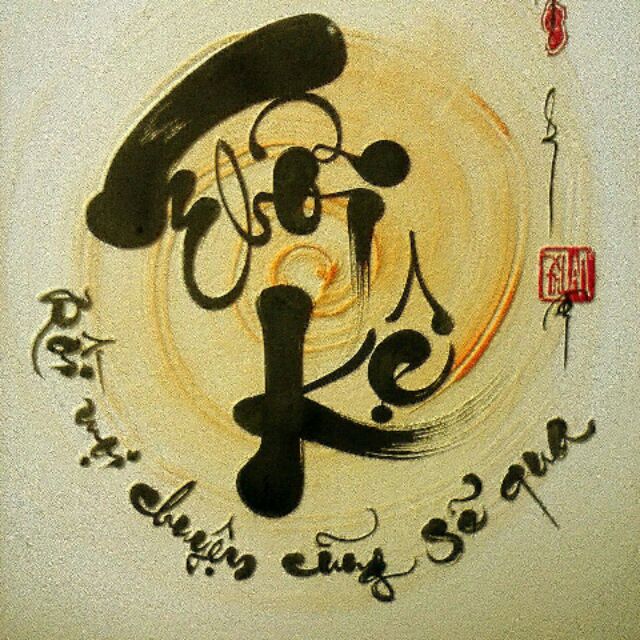 Thôi
Kệ
Rồi mọi chuyện cũng sẽ qua